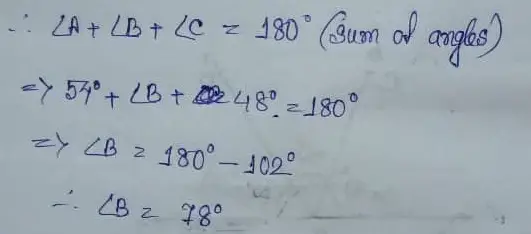 ∴ ∠A + ∠B + ∠C = 180° (Sum of angles)
=> 54° + ∠B + 48° = 180°
=> ∠B = 180° - 102°
∴ ∠B = 78°